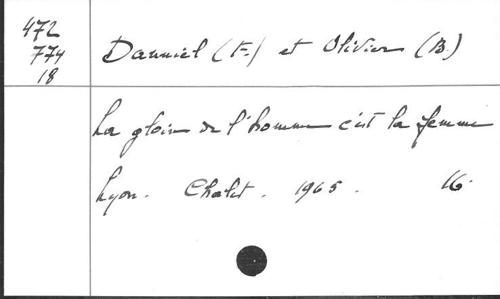 472
774
18
Danniel (F.) et Olivier (B.)
La gloire de l'homme c'est la femme
Lyon. Chalet. 1965. 16°